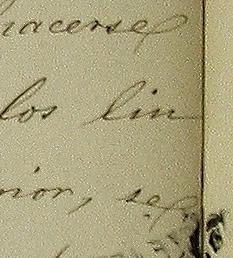 hacerse
los lin
nior, se